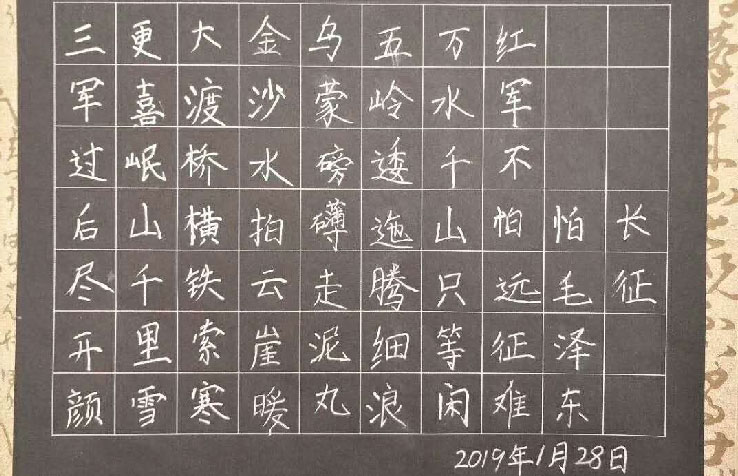 长征
怕毛泽东
红军不怕远征难
万水千山只等闲
五岭逶迤腾细浪
乌蒙磅礴走泥丸
金沙水拍云崖暖
大渡桥横铁索寒
更喜岷山千里雪
三军过后尽开颜
2019年1月28日